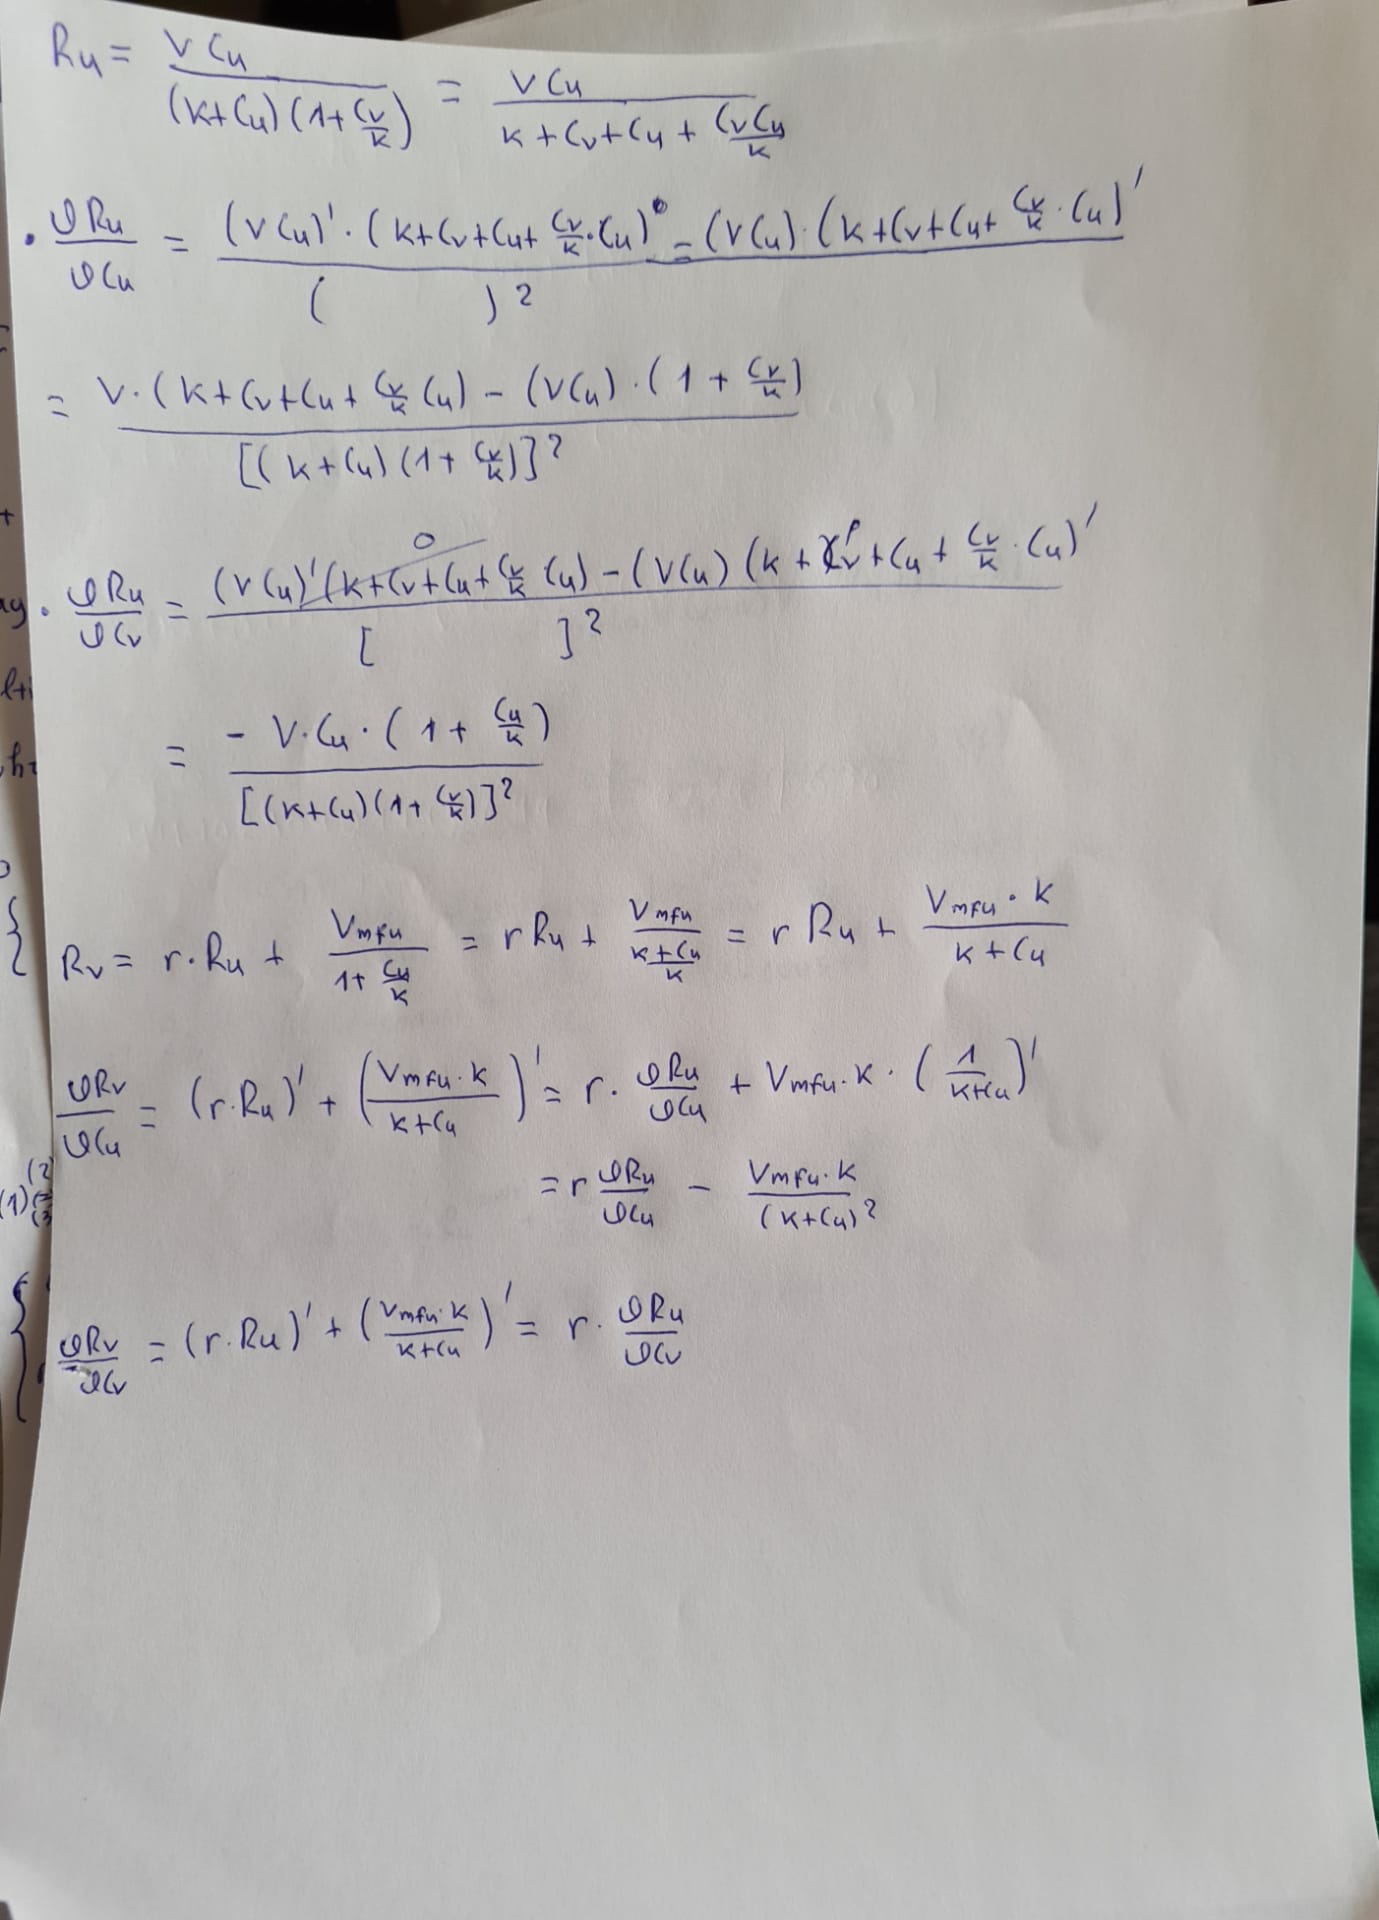 Ru = V Cu / (k+Cu)(1+Cv/k) = V Cu / k+Cv+Cu+ CvCu/k
• ∂Ru/∂Cu = (V Cu)' · (k+Cv+Cu+ Cv/k · Cu) - (V Cu) · (k+Cv+Cu+ Cv/k · Cu)' / ( )²
= V · (k+Cv+Cu+ Cv/k Cu) - (V Cu) · (1+ Cv/k) / [(k+Cu)(1+ Cv/k)]²
0
• ∂Ru/∂Cv = (V Cu)' (k+Cv+Cu+ Cv/k Cu) - (V Cu) (k + Cv + Cu + Cv/k · Cu)' / [ ]²
= - V · Cu · (1+ Cu/k) / [(k+Cu)(1+ Cv/k)]²
Rv = r · Ru + Vmfu / 1+ Cu/k = r Ru + Vmfu / k+Cu/k = r Ru + Vmfu · k / k+Cu
∂Rv/∂Cu = (r · Ru)' + (Vmfu · k / k+Cu)' = r · ∂Ru/∂Cu + Vmfu · k · (1/k+Cu)'
= r ∂Ru/∂Cu - Vmfu · k / (k+Cu)²
∂Rv/∂Cv = (r · Ru)' + (Vmfu · k / k+Cu)' = r · ∂Ru/∂Cv